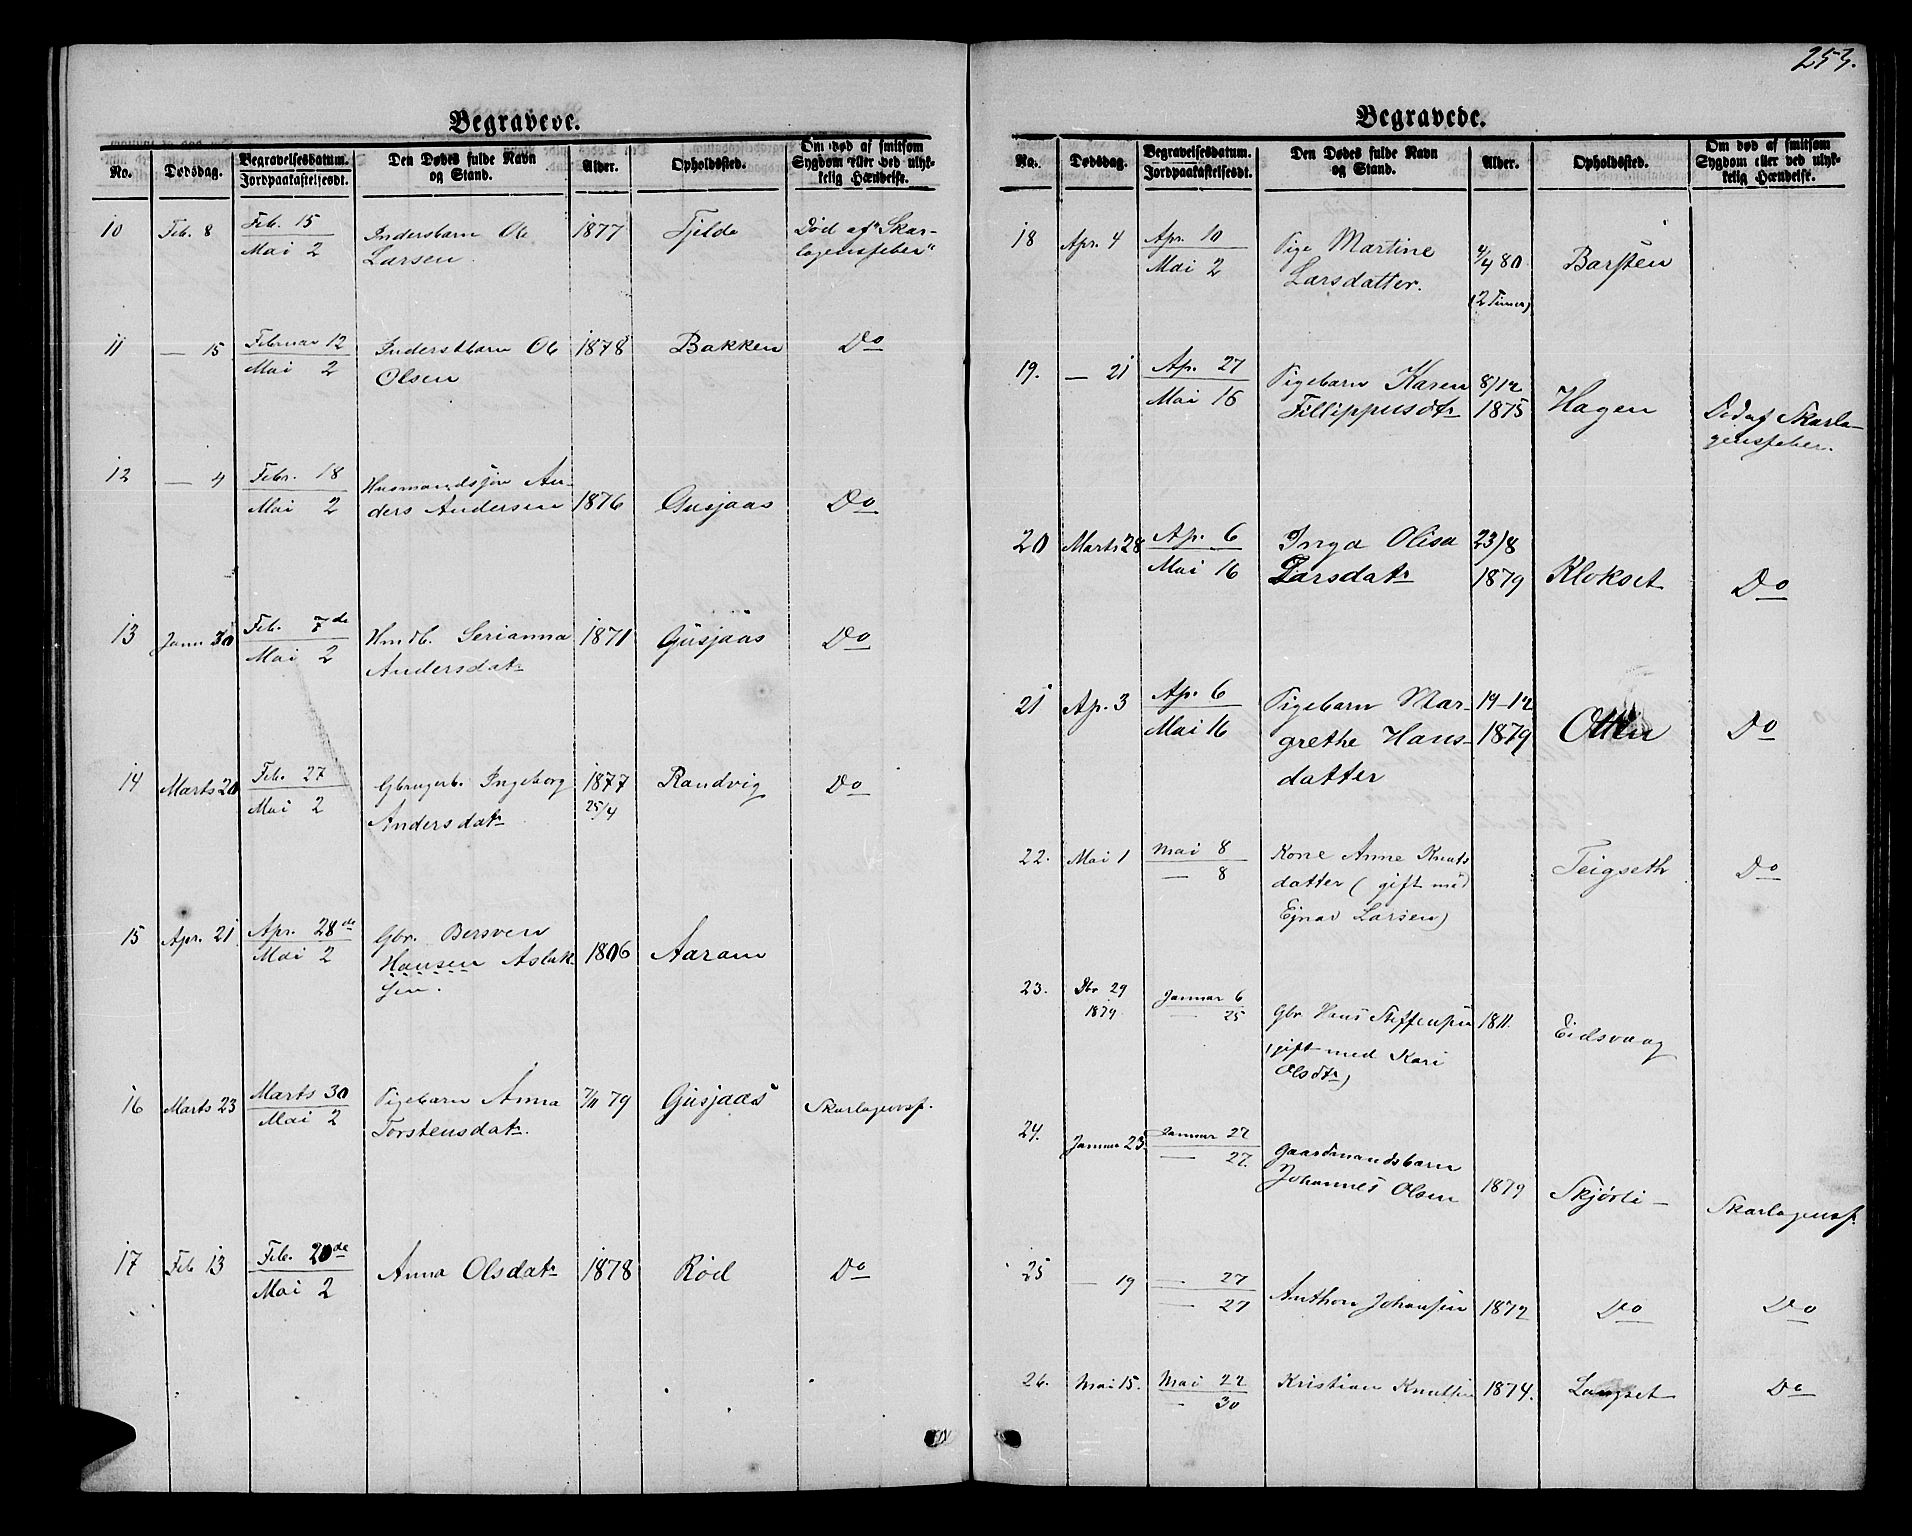 253.
Begravede.
No.
Dødsdag.
Begravelsesdatum.
Jordpaakastelsesdt.
Den Dødes fulde Navn
og Stand.
Alder.
Opholdssted.
Om død af smitsom
Sygdom eller ved ulyk-
kelig Hændelse.
10 Feb. 8 Feb. 15 Inderstbarn Ole 1877 Tjelde Død af "Skar-
Mai 2 Larsen lagensfeber"
11 — 15 Februar 12 Inderstbarn Ole 1878 Bakken Do
Mai 2 Olsen
12 — 4 Febr. 18 Husmandssøn An-
Mai 2 ders Andersen 1876 Gusjaas Do
13 Janu 30 Feb. 7de Hmdb. Serianna 1871 Gusjaas Do
Mai 2 Andersdatr
14 Marts 20 Feb. 27 Gbrugerb. Ingeborg 1877 Randvig Do
Mai 2 Andersdatr 25/4
15 Apr. 21 Apr. 28de Gbr. Bersven
Mai 2 Hansen Aslak- 1806 Aaram
sen.
16 Marts 23 Marts 30 Pigebarn Anna 7/11 79 Gusjaas Skarlagensf.
Mai 2 Torstensdatr
17 Feb 13 Feb. 20de Anna Olsdatr 1878 Rød Do
Mai 2
Begravede.
No.
Dødsdag.
Begravelsesdatum.
Jordpaakastelsesdt.
Den Dødes fulde Navn
og Stand.
Alder.
Opholdssted.
Om død af smitsom
Sygdom eller ved ulyk-
kelig Hændelse.
18 Apr. 4 Apr. 10 Pige Martine 4/4 80 Barsten
Mai 2 Larsdatter. (2 Timer)
19. — 21 Ap. 27 Pigebarn Karen 8/12
Mai 16 Fillippusdtr 1875 Hagen Død af Skarla-
gensfeber.
20 Marts 28 Ap. 6 Inga Olisa 23/8
Mai 16 Larsdatr 1879 Klokset Do
21 Ap. 3 Ap. 6 Pigebarn Mar- 19-12
Mai 16 grethe Hans- 1879 Do
datter
22. Mai 1 Mai 8 Kone Anne Knuts
— 8 datter (gift med Teigseth Do
Ejnar Larsen)
23. Dbr 29 Januar 6
1879. — 25 Gbr. Hans Steffensen 1811. Eidsvaag
(gift med Kari
Olsdtr)
24. Januar 23. Januar 27
— 27. Gaardmandsbarn
Johannes Olsen 1879 Skjørli — Skarlagensf.
25 — 19 — 27
— 27 Anthon Johansen 1872 Do Do
26. Mai 15. Mai 22 Kristian Knutsen 1874. Langset Do
— 30